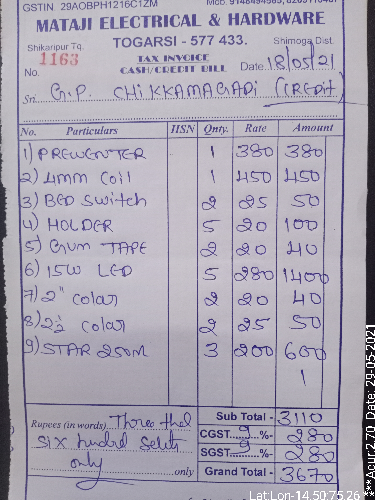 GSTIN 29AOBPH1216C1ZM
MATAJI ELECTRICAL & HARDWARE
TOGARSI - 577 433.
Shikaripur Tq. Shimoga Dist.
No. 1163 TAX INVOICE CASH/CREDIT BILL Date 18/05/21
Sri G.P. CHIKKAMAGADI (CREDIT)
No. Particulars HSN Qnty. Rate Amount
1) PREWENTER 1 380 380
2) 4mm Coil 1 450 450
3) BED Switch 2 25 50
4) HOLDER 5 20 100
5) Gum TAPE 2 20 40
6) 15W LED 5 280 1400
7) 2" colar 2 20 40
8) 2½ colar 2 25 50
9) STAR 250M 3 200 600
Sub Total - 3110
Rupees (in words) Three thd
six hundred
only only
CGST 9 %- 280
SGST 9 %- 280
Grand Total - 3670
Lat:Lon-14.50:75.26
***Acur:2.70 Date: 29-05-2021